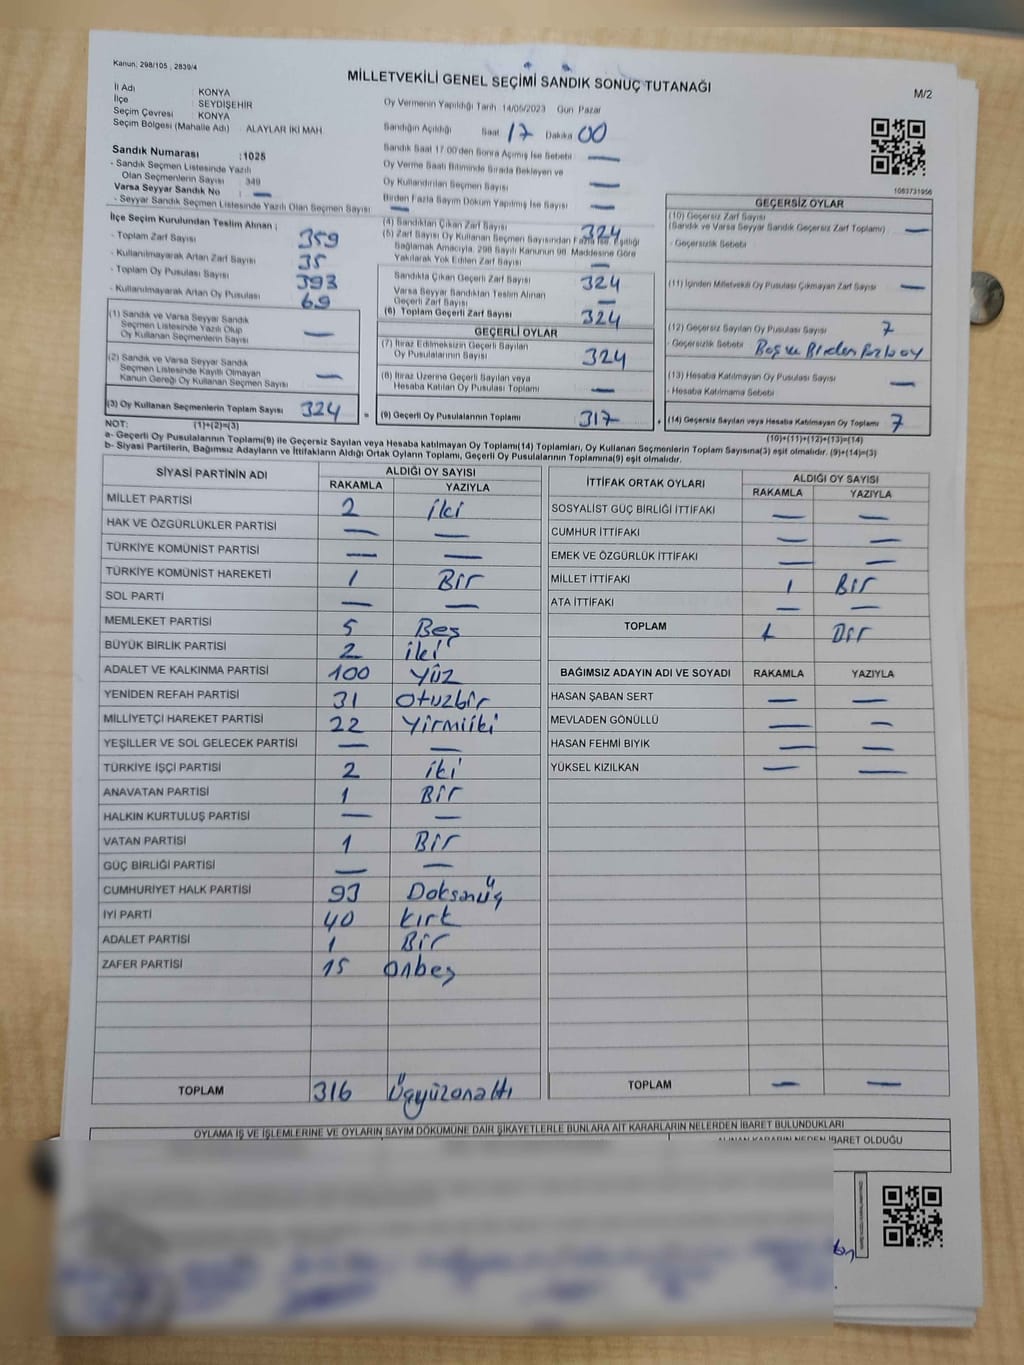 Kanun: 298/105 , 2839/4
MİLLETVEKİLİ GENEL SEÇİMİ SANDIK SONUÇ TUTANAĞI
M/2
İl Adı : KONYA
İlçe : SEYDİŞEHİR
Seçim Çevresi : KONYA
Seçim Bölgesi (Mahalle Adı) : ALAYLAR İKİ MAH
Sandık Numarası :1025
- Sandık Seçmen Listesinde Yazılı
Olan Seçmenlerin Sayısı : 349
Varsa Seyyar Sandık No : —
- Seyyar Sandık Seçmen Listesinde Yazılı Olan Seçmen Sayısı —
Oy Vermenin Yapıldığı Tarih 14/05/2023 Gün Pazar
Sandığın Açıldığı Saat 17 Dakika 00
Sandık Saat 17:00'den Sonra Açılmış İse Sebebi —
Oy Verme Saati Bitiminde Sırada Bekleyen ve
Oy Kullandırılan Seçmen Sayısı —
Birden Fazla Sayım Döküm Yapılmış İse Sayısı —
1063731956
İlçe Seçim Kurulundan Teslim Alınan ;
- Toplam Zarf Sayısı 359
- Kullanılmayarak Artan Zarf Sayısı 35
- Toplam Oy Pusulası Sayısı 393
- Kullanılmayarak Artan Oy Pusulası 69
(1) Sandık ve Varsa Seyyar Sandık
Seçmen Listesinde Yazılı Olup
Oy Kullanan Seçmenlerin Sayısı —
(2) Sandık ve Varsa Seyyar Sandık
Seçmen Listesinde Kayıtlı Olmayan
Kanun Gereği Oy Kullanan Seçmen Sayısı —
(3) Oy Kullanan Seçmenlerin Toplam Sayısı 324 =
(1)+(2)=(3)
(4) Sandıktan Çıkan Zarf Sayısı 324
(5) Zarf Sayısı Oy Kullanan Seçmen Sayısından Fazla İse, Eşitliği
Sağlamak Amacıyla, 298 Sayılı Kanunun 98. Maddesine Göre
Yakılarak Yok Edilen Zarf Sayısı —
Sandıkta Çıkan Geçerli Zarf Sayısı 324
Varsa Seyyar Sandıktan Teslim Alınan
Geçerli Zarf Sayısı —
(6) Toplam Geçerli Zarf Sayısı 324
GEÇERLİ OYLAR
(7) İtiraz Edilmeksizin Geçerli Sayılan
Oy Pusulalarının Sayısı 324
(8) İtiraz Üzerine Geçerli Sayılan veya
Hesaba Katılan Oy Pusulası Toplamı —
(9) Geçerli Oy Pusulalarının Toplamı 317 +
GEÇERSİZ OYLAR
(10) Geçersiz Zarf Sayısı
(Sandık ve Varsa Seyyar Sandık Geçersiz Zarf Toplamı) —
- Geçersizlik Sebebi
(11) İçinden Milletvekili Oy Pusulası Çıkmayan Zarf Sayısı —
(12) Geçersiz Sayılan Oy Pusulası Sayısı 7
- Geçersizlik Sebebi Boş ve Birden Fazla oy
(13) Hesaba Katılmayan Oy Pusulası Sayısı —
- Hesaba Katılmama Sebebi
(14) Geçersiz Sayılan veya Hesaba Katılmayan Oy Toplamı 7
(10)+(11)+(12)+(13)=(14)
NOT:
a- Geçerli Oy Pusulalarının Toplamı(9) ile Geçersiz Sayılan veya Hesaba katılmayan Oy Toplamı(14) Toplamları, Oy Kullanan Seçmenlerin Toplam Sayısına(3) eşit olmalıdır. (9)+(14)=(3)
b- Siyasi Partilerin, Bağımsız Adayların ve İttifakların Aldığı Ortak Oyların Toplamı, Geçerli Oy Pusulalarının Toplamına(9) eşit olmalıdır.
SİYASİ PARTİNİN ADI ALDIĞI OY SAYISI
RAKAMLA YAZIYLA
MİLLET PARTİSİ 2 iki
HAK VE ÖZGÜRLÜKLER PARTİSİ — —
TÜRKİYE KOMÜNİST PARTİSİ — —
TÜRKİYE KOMÜNİST HAREKETİ 1 Bir
SOL PARTİ — —
MEMLEKET PARTİSİ 5 Beş
BÜYÜK BİRLİK PARTİSİ 2 iki
ADALET VE KALKINMA PARTİSİ 100 yüz
YENİDEN REFAH PARTİSİ 31 otuzbir
MİLLİYETÇİ HAREKET PARTİSİ 22 yirmiiki
YEŞİLLER VE SOL GELECEK PARTİSİ — —
TÜRKİYE İŞÇİ PARTİSİ 2 iki
ANAVATAN PARTİSİ 1 Bir
HALKIN KURTULUŞ PARTİSİ — —
VATAN PARTİSİ 1 Bir
GÜÇ BİRLİĞİ PARTİSİ — —
CUMHURİYET HALK PARTİSİ 93 Doksanüç
İYİ PARTİ 40 kırk
ADALET PARTİSİ 1 Bir
ZAFER PARTİSİ 15 onbeş
TOPLAM 316 Üçyüzonaltı
İTTİFAK ORTAK OYLARI ALDIĞI OY SAYISI
RAKAMLA YAZIYLA
SOSYALİST GÜÇ BİRLİĞİ İTTİFAKI — —
CUMHUR İTTİFAKI — —
EMEK VE ÖZGÜRLÜK İTTİFAKI — —
MİLLET İTTİFAKI 1 Bir
ATA İTTİFAKI — —
TOPLAM 1 Bir
BAĞIMSIZ ADAYIN ADI VE SOYADI RAKAMLA YAZIYLA
HASAN ŞABAN SERT — —
MEVLADEN GÖNÜLLÜ — —
HASAN FEHMİ BIYIK — —
YÜKSEL KIZILKAN — —
TOPLAM — —
OYLAMA İŞ VE İŞLEMLERİNE VE OYLARIN SAYIM DÖKÜMÜNE DAİR ŞİKAYETLERLE BUNLARA AİT KARARLARIN NELERDEN İBARET BULUNDUKLARI
ALINAN KARARIN NEDEN İBARET OLDUĞU